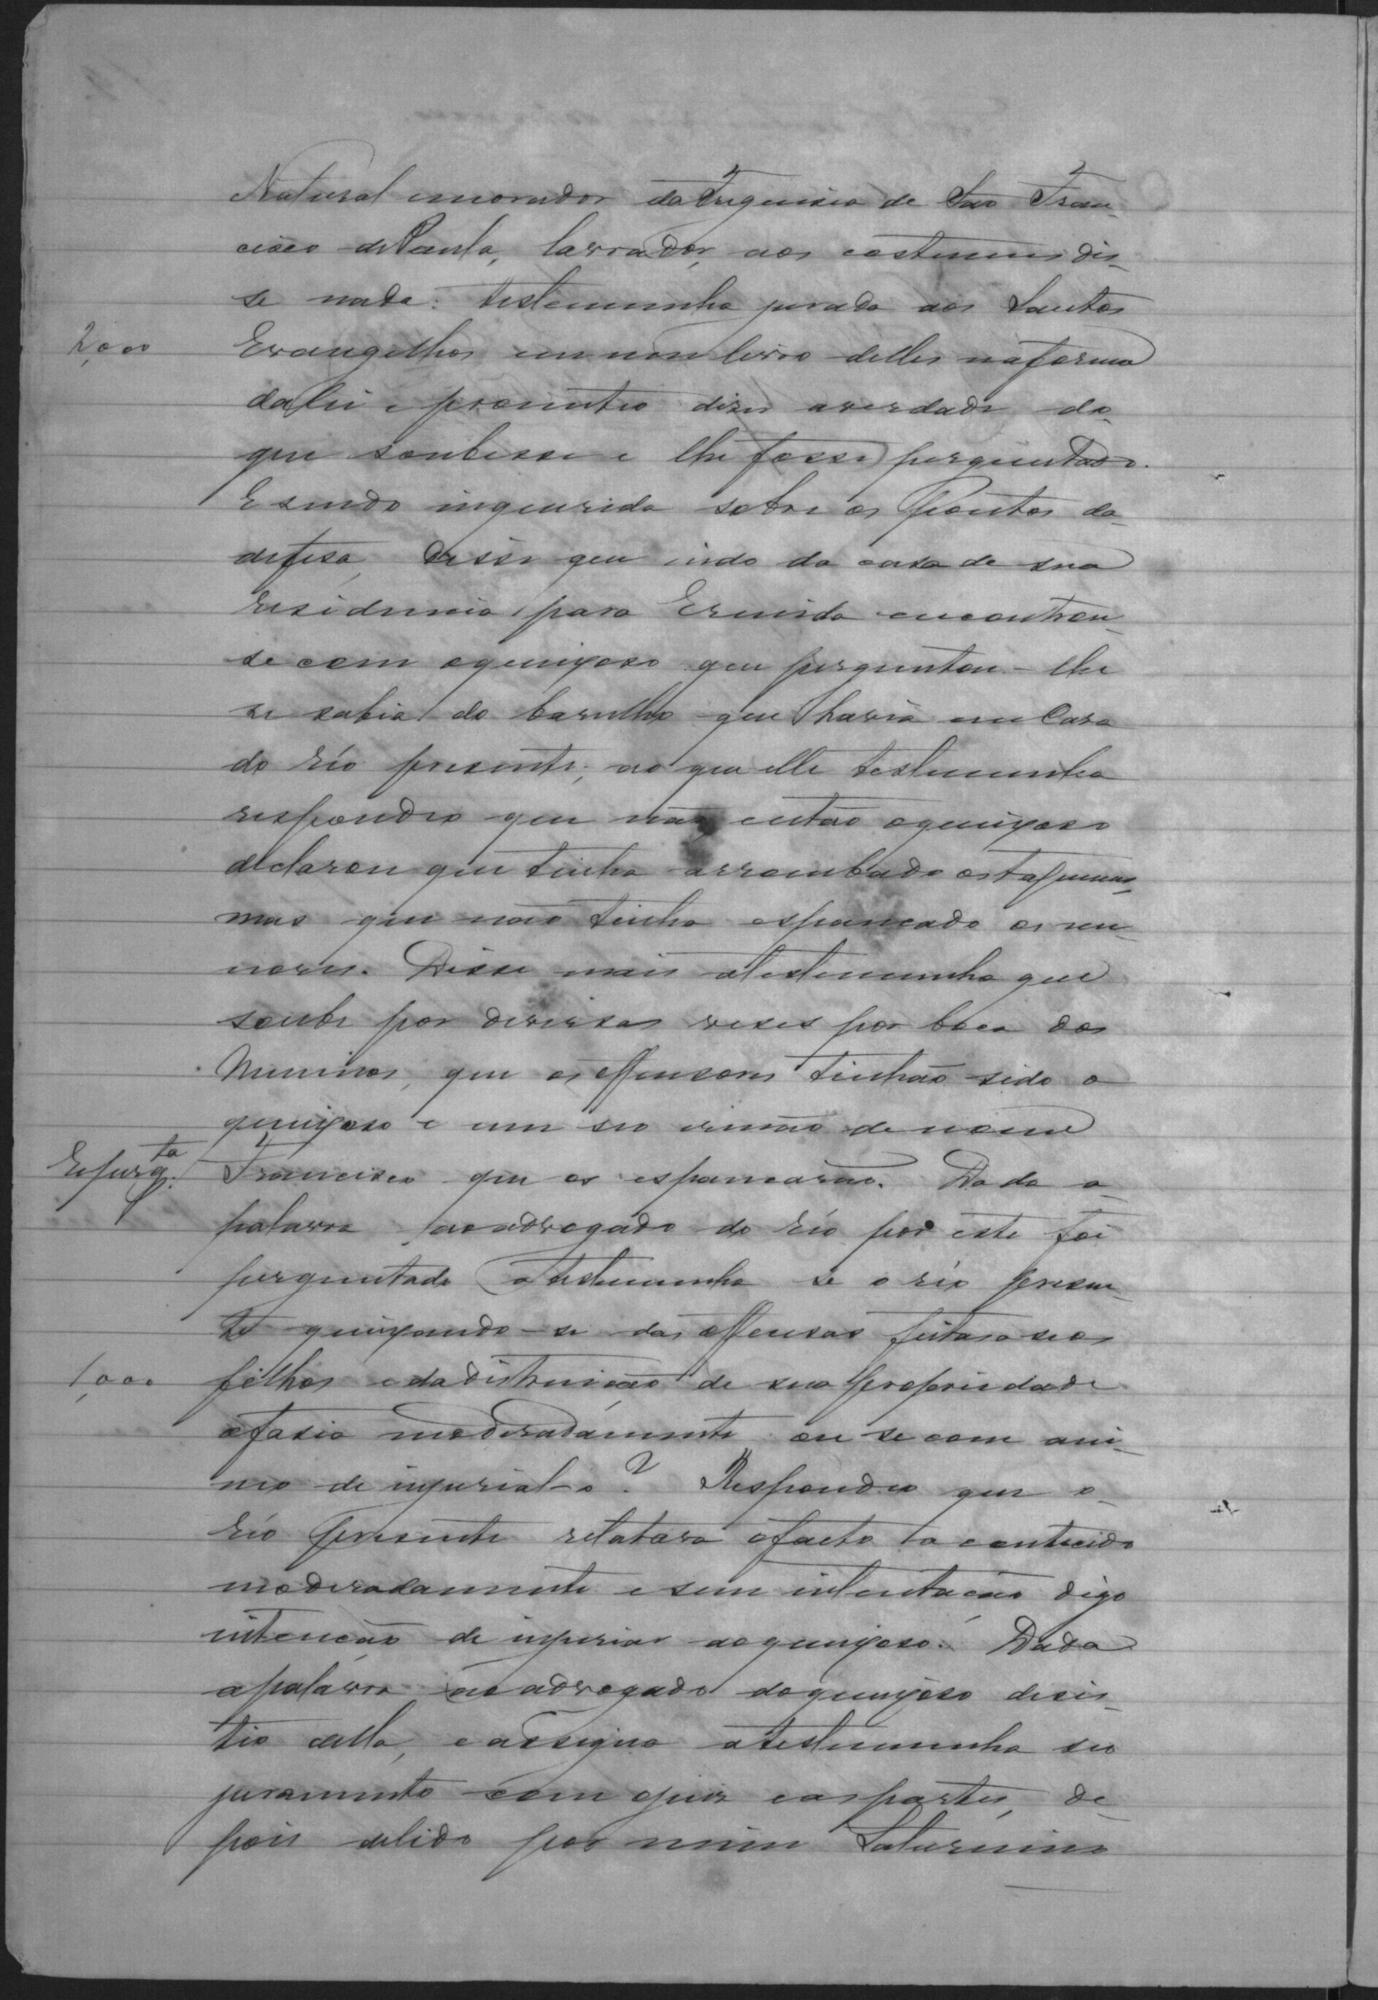 Natural e morador da Freguisia de São Fran-
cisco de Paula, lavrador, aos costumes dis-
se nada. testemunha jurada aos Santos
2,000
Evangelhos em um livro delles na forma
da lei e prometeo dizer a verdade do
que soubesse e lhe fosse perguntado.
E sendo inquerida sobre os Pontos da
defesa, Disse que indo da casa de sua
residencia para Ermida encontrou-
se com o queixoso que perguntou-lhe
se sabia do barulho que havia em Casa
do réo presente, ao que elle testemunha
respondeo que não, então o queixoso
declarou que tinha arrombado os tapumes,
mas que não tinha espancado os me-
nores. Disse mais a testemunha que
soube por diversas veses por boca dos
Meninos, que os offensores tinhão sido o
queixoso e um seo irmão de nome
Repergta.
Francisco que os espancarão. Dada a
palavra ao advogado do réo por este foi
perguntado a testemunha se o réo presen-
te queixando-se das offensas feitas a seos
1,000
filhos e da distruição de sua propriedade
o fasia moderadamente ou se com ani-
mo de injurial-o? Respondeo que o
réo presente relatara o facto acontecido
moderadamente e sem intentação digo
intenção de injuriar ao queixoso. Dada
a palavra ao advogado do queixoso desis-
tio della, e assigna a testemunha seo
juramento com o juiz e as partes, de-
pois de lido por mim Saturnino